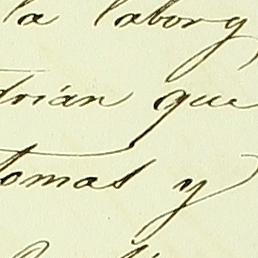 la labor y
drian que
tomas y